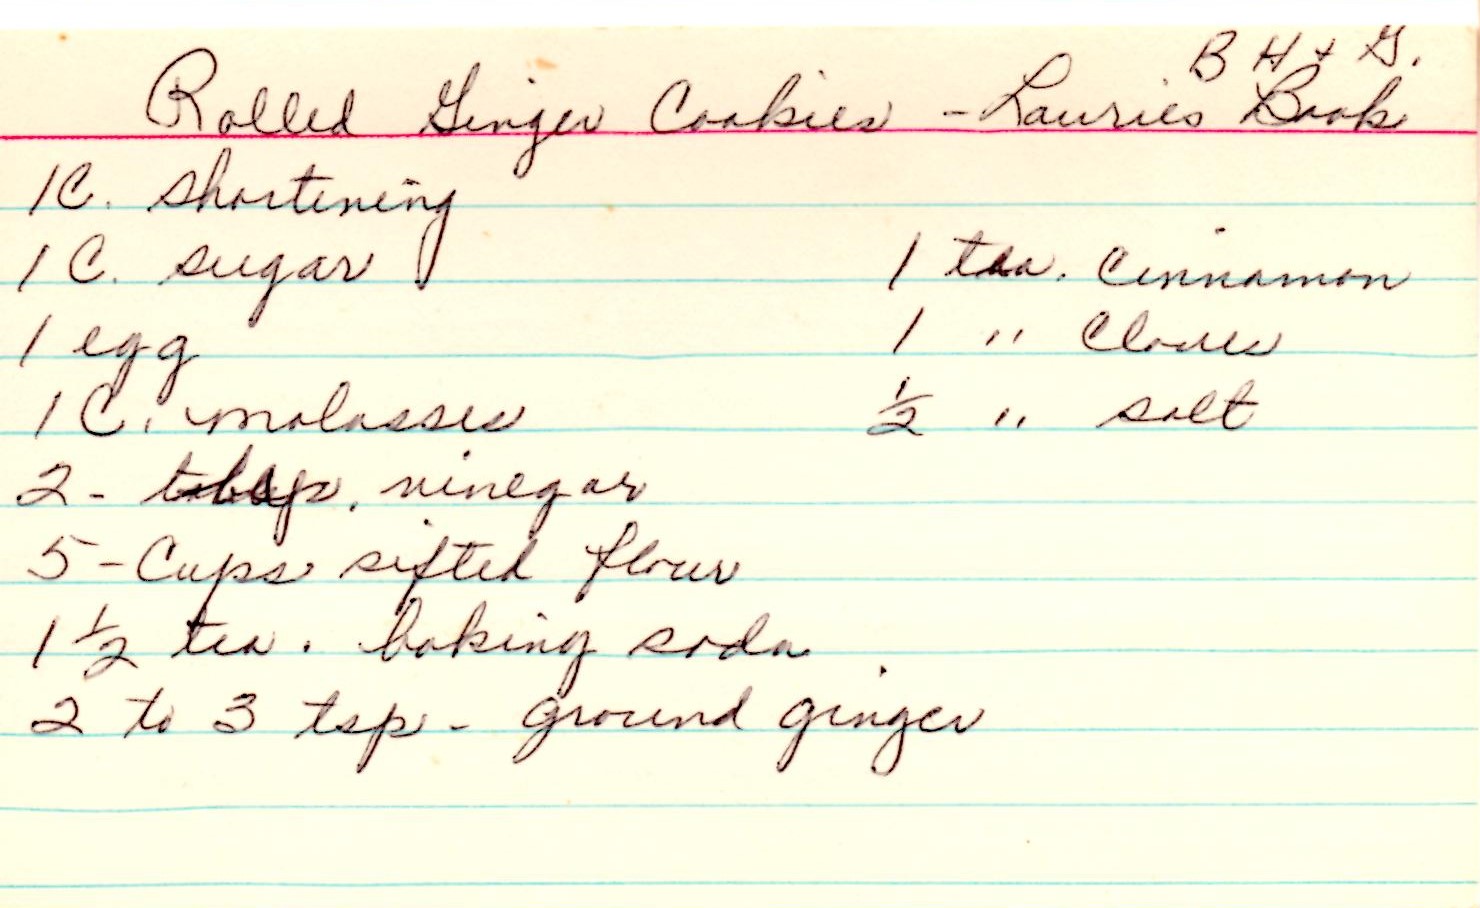 B H + G.
Rolled Ginger Cookies - Lauries Book
1 C. shortening
1 C. sugar
1 egg
1 C. molasses
2 - tblsp. vinegar
5 - Cups sifted flour
1 ½ tea. baking soda
2 to 3 tsp - ground ginger
1 tea. cinnamon
1 " Cloves
½ " salt